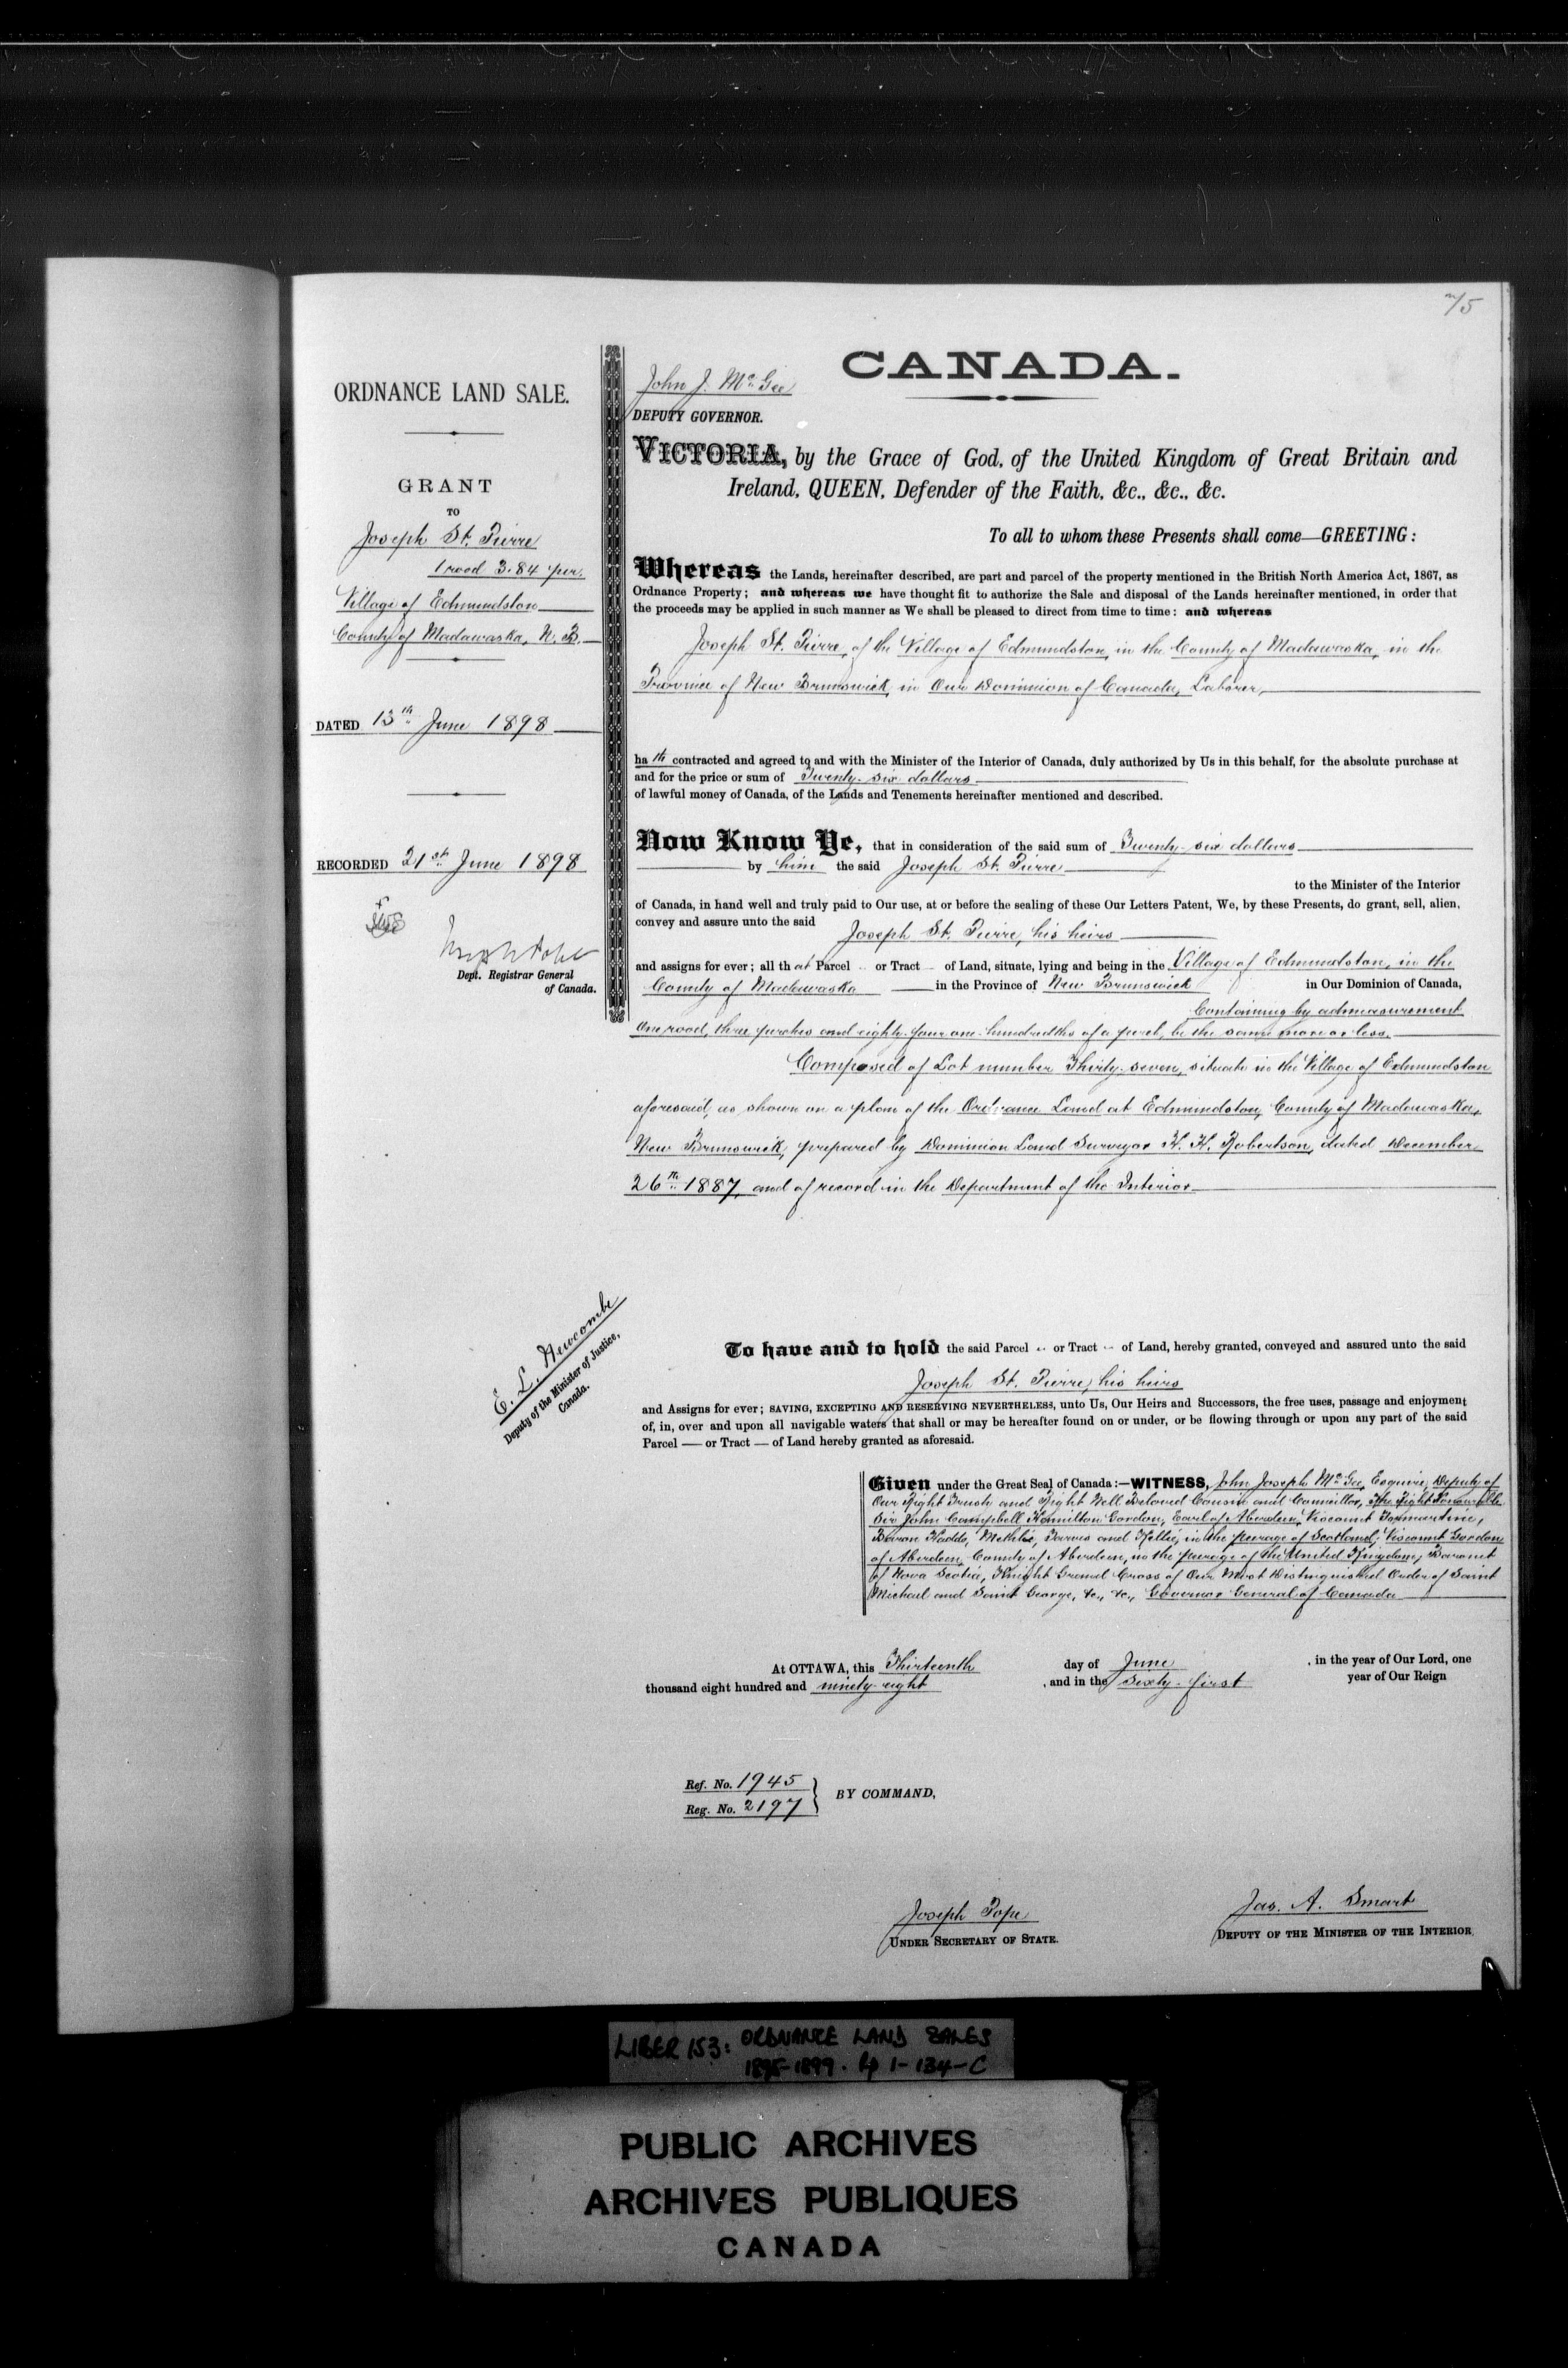 ORDNANCE LAND SALE.
GRANT
TO
Joseph St. Pierre
1 rood 3.84 per.
Village of Edmundston
County of Madawaska, N. B.
DATED 13th June 1898
RECORDED 21st June 1898
Joseph Pope
Dept. Registrar General
of Canada.
E. L. Newcombe
Deputy of the Minister of Justice,
Canada.
CANADA.
John J. McGee
DEPUTY GOVERNOR.
VICTORIA, by the Grace of God, of the United Kingdom of Great Britain and
Ireland, QUEEN, Defender of the Faith, &c., &c., &c.
To all to whom these Presents shall come—GREETING:
Whereas the Lands, hereinafter described, are part and parcel of the property mentioned in the British North America Act, 1867, as
Ordnance Property; and whereas we have thought fit to authorize the Sale and disposal of the Lands hereinafter mentioned, in order that
the proceeds may be applied in such manner as We shall be pleased to direct from time to time: and whereas
Joseph St. Pierre, of the Village of Edmundston, in the County of Madawaska, in the
Province of New Brunswick, in Our Dominion of Canada, Laborer,
hath contracted and agreed to and with the Minister of the Interior of Canada, duly authorized by Us in this behalf, for the absolute purchase at
and for the price or sum of Twenty-six dollars
of lawful money of Canada, of the Lands and Tenements hereinafter mentioned and described.
Now Know Ye, that in consideration of the said sum of Twenty-six dollars
by him the said Joseph St. Pierre
to the Minister of the Interior
of Canada, in hand well and truly paid to Our use, at or before the sealing of these Our Letters Patent, We, by these Presents, do grant, sell, alien,
convey and assure unto the said Joseph St. Pierre, his heirs
and assigns for ever; all that Parcel or Tract of Land, situate, lying and being in the Village of Edmundston, in the
County of Madawaska in the Province of New Brunswick in Our Dominion of Canada,
Containing by admeasurement
One rood, three perches and eighty-four one-hundredths of a perch, be the same more or less.
Composed of Lot number Thirty-seven, situate in the Village of Edmundston
aforesaid, as shown on a plan of the Ordnance Land at Edmundston, County of Madawaska,
New Brunswick, prepared by Dominion Land Surveyor H. H. Robertson, dated December
26th 1887, and of record in the Department of the Interior
To have and to hold the said Parcel or Tract of Land, hereby granted, conveyed and assured unto the said
Joseph St. Pierre, his heirs
and Assigns for ever; SAVING, EXCEPTING AND RESERVING NEVERTHELESS, unto Us, Our Heirs and Successors, the free uses, passage and enjoyment
of, in, over and upon all navigable waters that shall or may be hereafter found on or under, or be flowing through or upon any part of the said
Parcel — or Tract — of Land hereby granted as aforesaid.
Given under the Great Seal of Canada:—WITNESS, John Joseph McGee, Esquire, Deputy of
Our Right Trusty and Right Well Beloved Cousin and Councillor, The Right Honourable
Sir John Campbell Hamilton Gordon, Earl of Aberdeen, Viscount Formartine,
Baron Haddo, Methlic, Tarves and Kellie, in the peerage of Scotland; Viscount Gordon
of Aberdeen, County of Aberdeen, in the peerage of the United Kingdom; Baronet
of Nova Scotia, Knight Grand Cross of Our Most Distinguished Order of Saint
Michael and Saint George, &c., &c., Governor General of Canada
At OTTAWA, this Thirteenth day of June, in the year of Our Lord, one
thousand eight hundred and ninety-eight, and in the Sixty-first year of Our Reign
Ref. No. 1945
Reg. No. 2197
BY COMMAND,
Joseph Pope
UNDER SECRETARY OF STATE.
Jas. A. Smart
DEPUTY OF THE MINISTER OF THE INTERIOR
LIBER 153: ORDNANCE LAND SALES
1895-1899. pp 1-134-C
PUBLIC ARCHIVES
ARCHIVES PUBLIQUES
CANADA